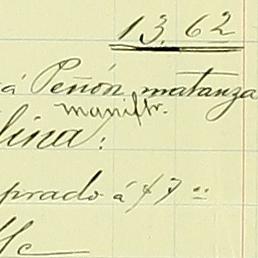 13.62
á Peñón matanza
manistr.
lina:
prado á $7"